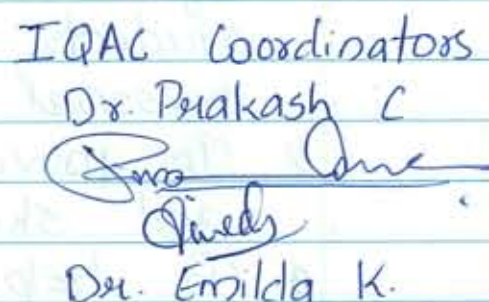 IQAC Coordinators
Dr. Prakash C
Dr. Emilda K.